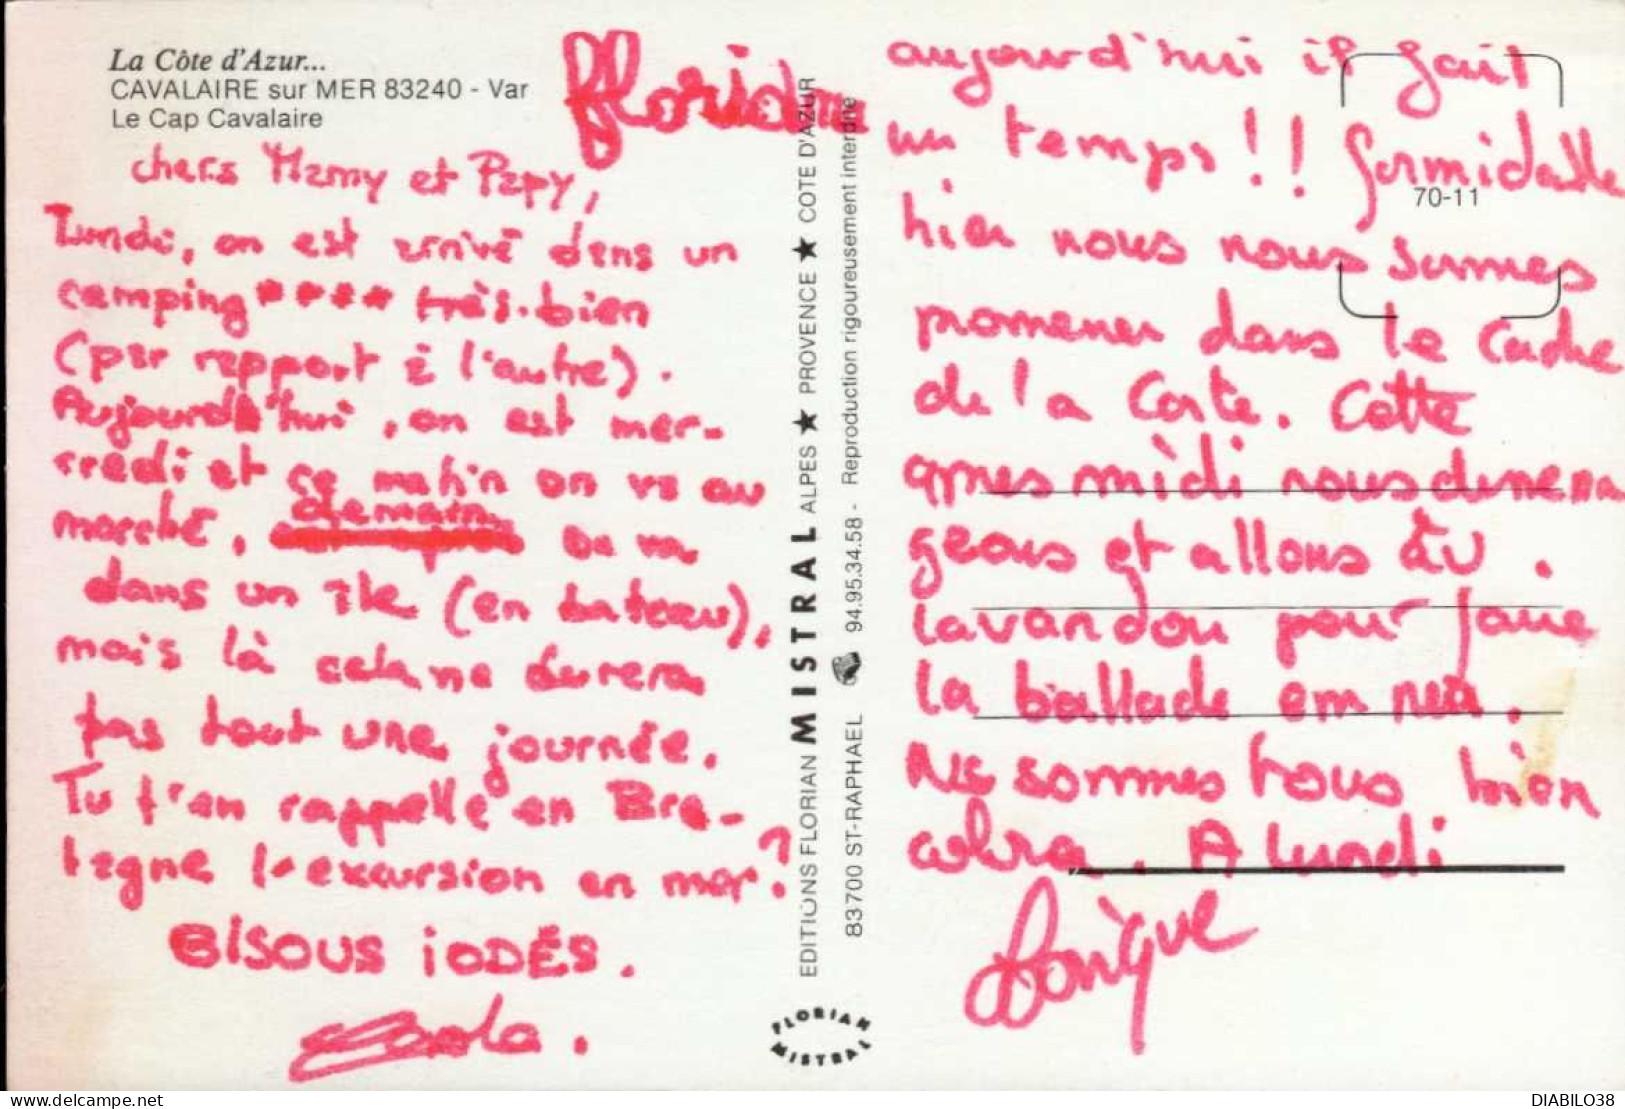 La Côte d'Azur...
CAVALAIRE sur MER 83240 - Var
Le Cap Cavalaire
chers Mamy et Papy,
Lundi, on est arrivé dans un
camping **** très bien
(par rapport à l'autre).
Aujourd'hui, on est mer-
credi et ce matin on va au
marché, demain on va
dans un île (en bateau),
mais là cela ne durera
pas tout une journée.
Tu t'en rappelle en Bre-
tagne l'excursion en mer?
BISOUS iODÉS.
EDITIONS FLORIAN MISTRAL ALPES ★ PROVENCE ★ COTE D'AZUR
83700 ST-RAPHAEL 94.95.34.58 - Reproduction rigoureusement interdite
FLORIAN
MISTRAL
aujourd'hui il fait
un temps!! formidable
70-11
hier nous nous sommes
promener dans le
de la Cette
apres midi nous
geons et allons au.
Lavandou pour faire
la ballade em mer.
Ns sommes tous bien
A lundi
DIABILO38